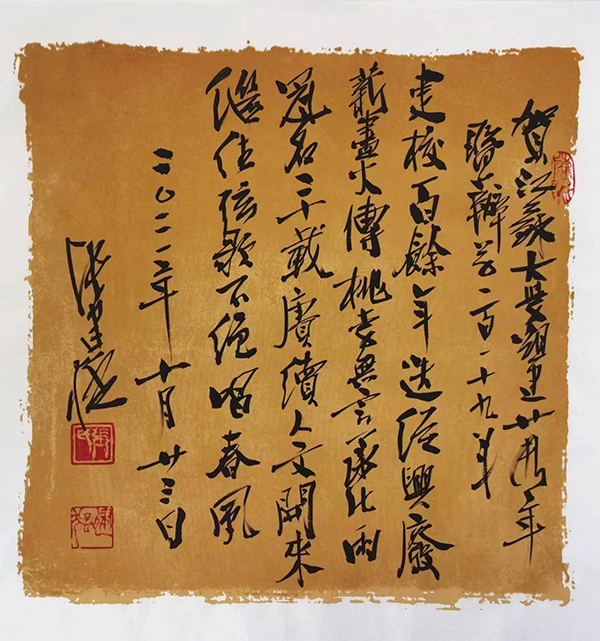 賀江蘇大學組建廿周年
暨辦学一百一十九年
建校百餘年迭經興廢
薪盡火傳桃李無言承化雨
冕名二十載賡續人文開來
繼往弦歌不絕唱春風
二〇二一年十月廿三日